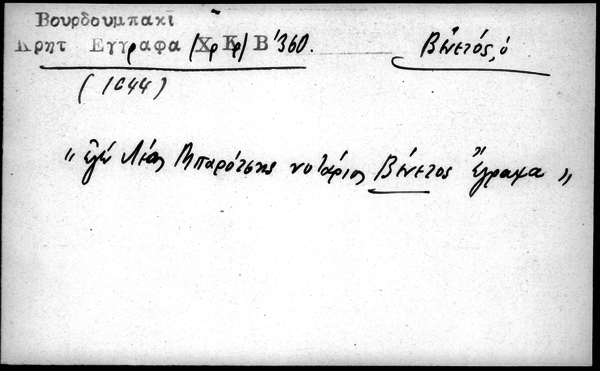 Βουρδουμπακι
Κρητ Εγγραφα (Χρ Κρ) Β' 360.
Βένετός, ὁ
(1644)
"ἐγὼ Λέος Μπαρότσης νοτάριος Βένετος ἔγραψα"